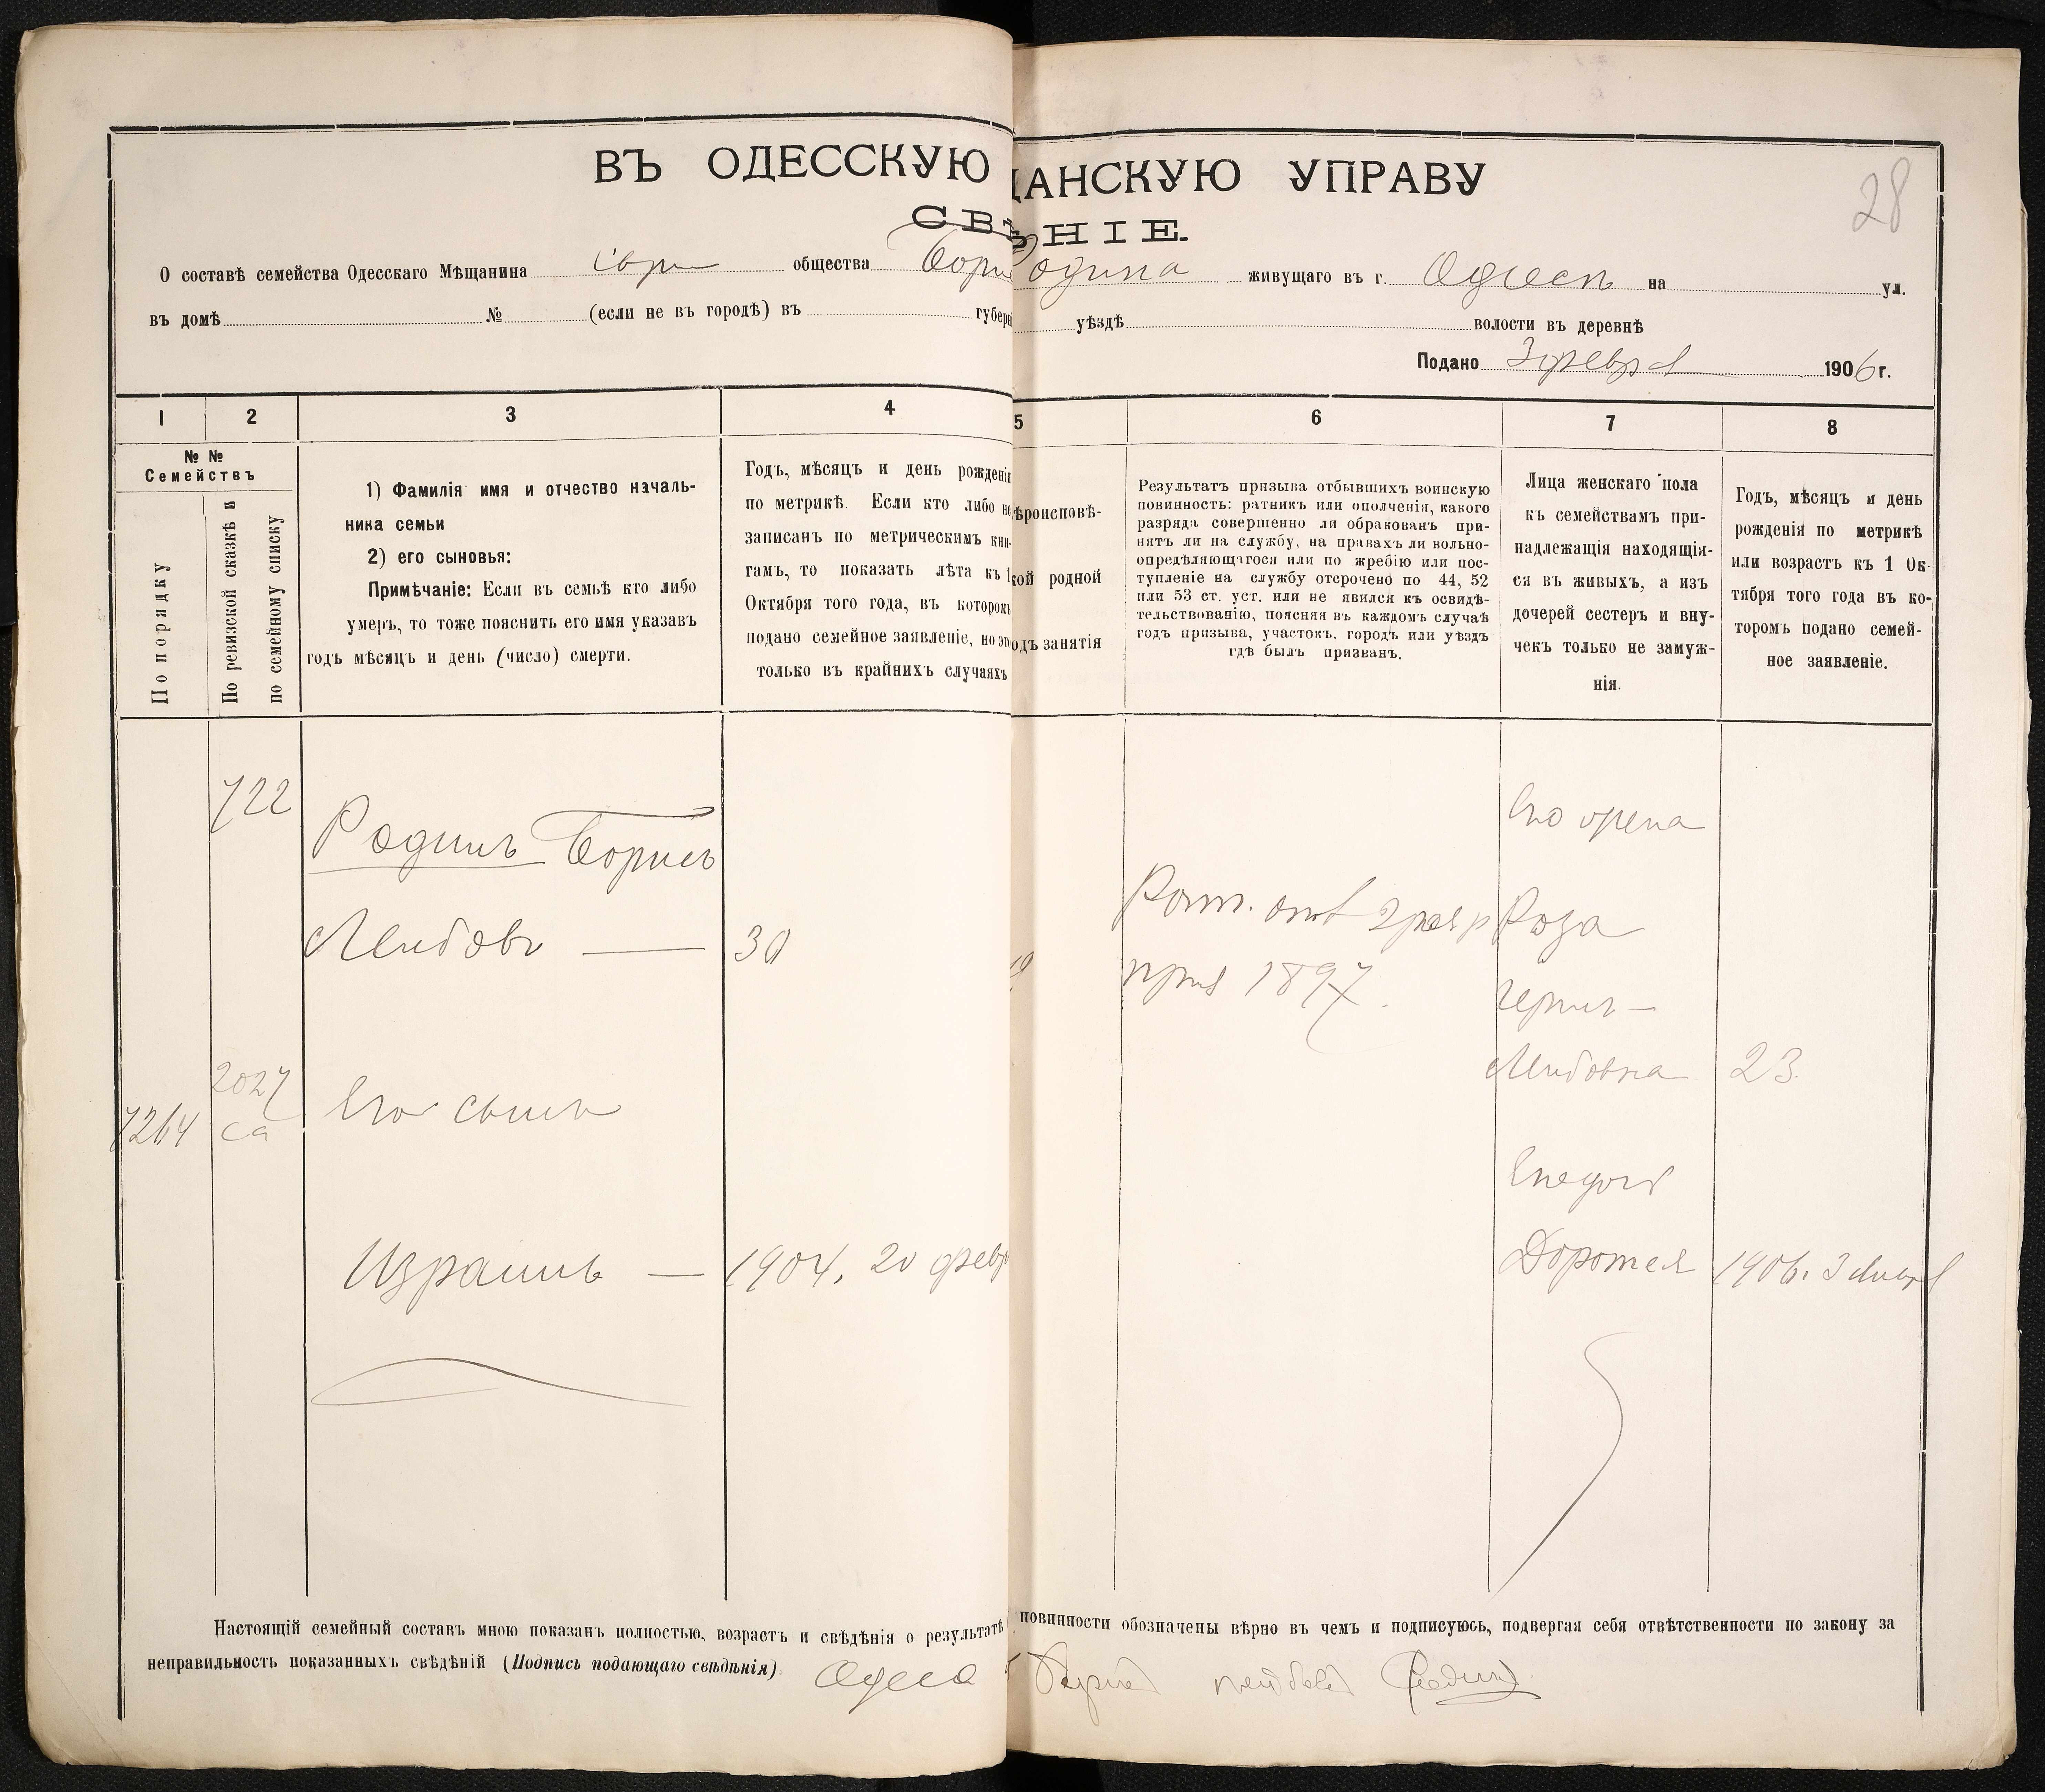 ВЪ ОДЕССКУЮ
ЩАНСКУЮ УПРАВУ
28
СВѢ
НІЕ.
О составѣ семейства Одесскаго Мѣщанина евр общества Бори
Родина живущаго въ г. Одессѣ на ул.
въ домѣ № (если не въ городѣ) въ губерн
уѣздѣ волости въ деревнѣ
Подано 3 февраля 1906 г.
1 2 3 4
5 6 7 8
№ №
Семействъ
По порядку
По ревизской сказкѣ и
по семейному списку
1) Фамилія имя и отчество началь-
ника семьи
2) его сыновья:
Примѣчаніе: Если въ семьѣ кто либо
умеръ, то тоже пояснить его имя указавъ
годъ мѣсяцъ и день (число) смерти.
Годъ, мѣсяцъ и день рожденія
по метрикѣ. Если кто либо не
записанъ по метрическимъ кни-
гамъ, то показать лѣта къ 1
Октября того года, въ которомъ
подано семейное заявленіе, но это
только въ крайнихъ случаяхъ
ѣроисповѣ-
кой родной
одъ занятія
Результатъ призыва отбывшихъ воинскую
повинность: ратникъ или ополченія, какого
разряда совершенно ли обракованъ при-
нятъ ли на службу, на правахъ ли вольно-
опредѣляющагося или по жребію или пос-
тупленіе на службу отсрочено по 44, 52
или 53 ст. уст. или не явился къ освидѣ-
тельствованію, поясняя въ каждомъ случаѣ
годъ призыва, участокъ, городъ или уѣздъ
гдѣ былъ призванъ.
Лица женскаго пола
къ семействамъ при-
надлежащія находящія-
ся въ живыхъ, а изъ
дочерей сестеръ и вну-
чекъ только не замуж-
нія.
Годъ, мѣсяцъ и день
рожденія по метрикѣ
или возрастъ къ 1 Ок-
тября того года въ ко-
торомъ подано семей-
ное заявленіе.
722
Родинъ Борисъ
Лейбовъ — 30
7264
2027
са
Его сынъ
Израиль — 1904, 20 февр
Рат. опол 2 разр
приз 1897.
Его жена
Роза
Лейбовна 23.
Его дочь
Доротея 1906. 3 Января
Настоящій семейный составъ мною показанъ полностью, возрастъ и свѣдѣнія о результатѣ
повинности обозначены вѣрно въ чемъ и подписуюсь, подвергая себя отвѣтственности по закону за
неправильность показанныхъ свѣдѣній (Подпись подающаго свѣдѣнія) Одеса
Борис Лейбов Родин